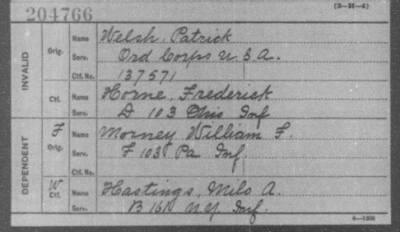 204766
(3-35-4)
INVALID
Orig.
Name Welsh, Patrick
Serv. Ord Corps U.S.A.
Ctf. No. 137571
Ctf.
Name Horne, Frederick
Serv. D 103 Ohio Inf
DEPENDENT
F
Orig.
Name Morney, William F.
Serv. F 103 Pa Inf.
W
Ctf.
Name Hastings, Milo A.
Serv. B 16 N.Y. Inf.